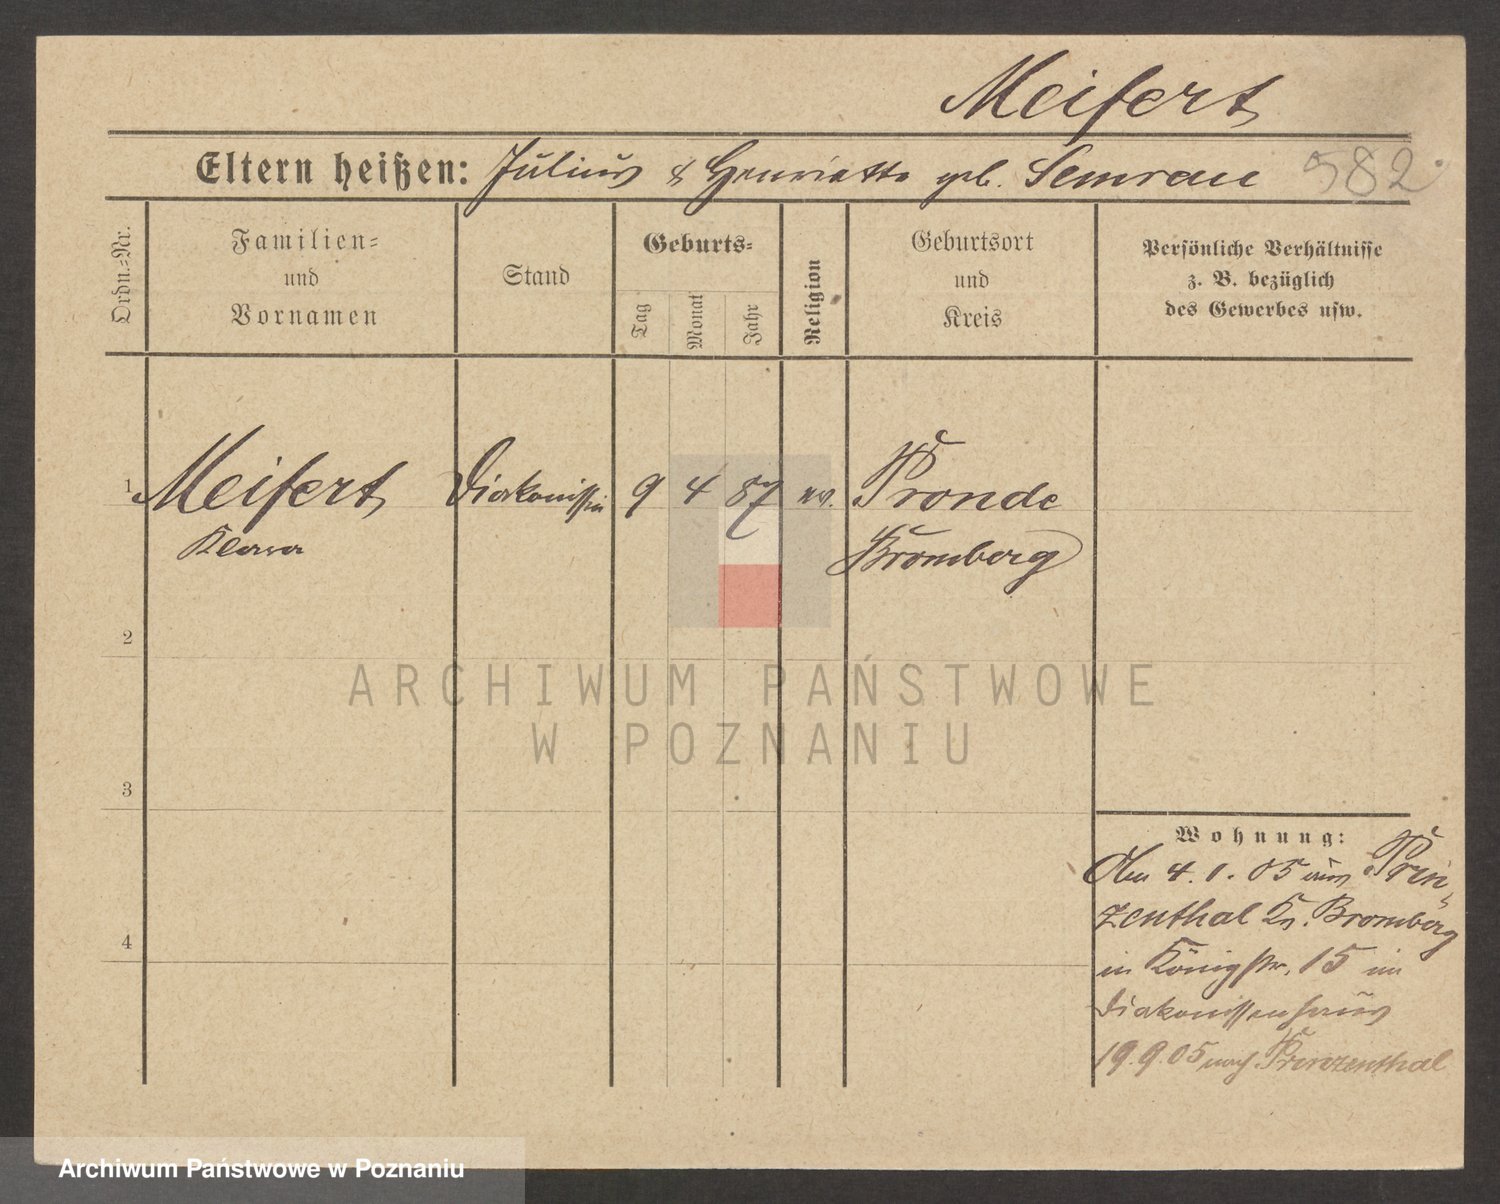 Meifert
Eltern heißen: Julius & Henriette geb. Semrau 582.
Ordn.-Nr.
Familien-
und
Vornamen
Stand
Geburts-
Tag
Monat
Jahr
Religion
Geburtsort
und
Kreis
Persönliche Verhältnisse
z. B. bezüglich
des Gewerbes usw.
1 Meifert Diakonissin 9 4 87 ev. Pronde
Klara Bromberg
2
ARCHIWUM PAŃSTWOWE
W POZNANIU
3
Wohnung:
4. 1. 05 aus Prin-
4
zenthal Kr. Bromberg
in Königstr. 15 im
Diakonissenhaus
19.9.05 nach Prinzenthal
Archiwum Państwowe w Poznaniu